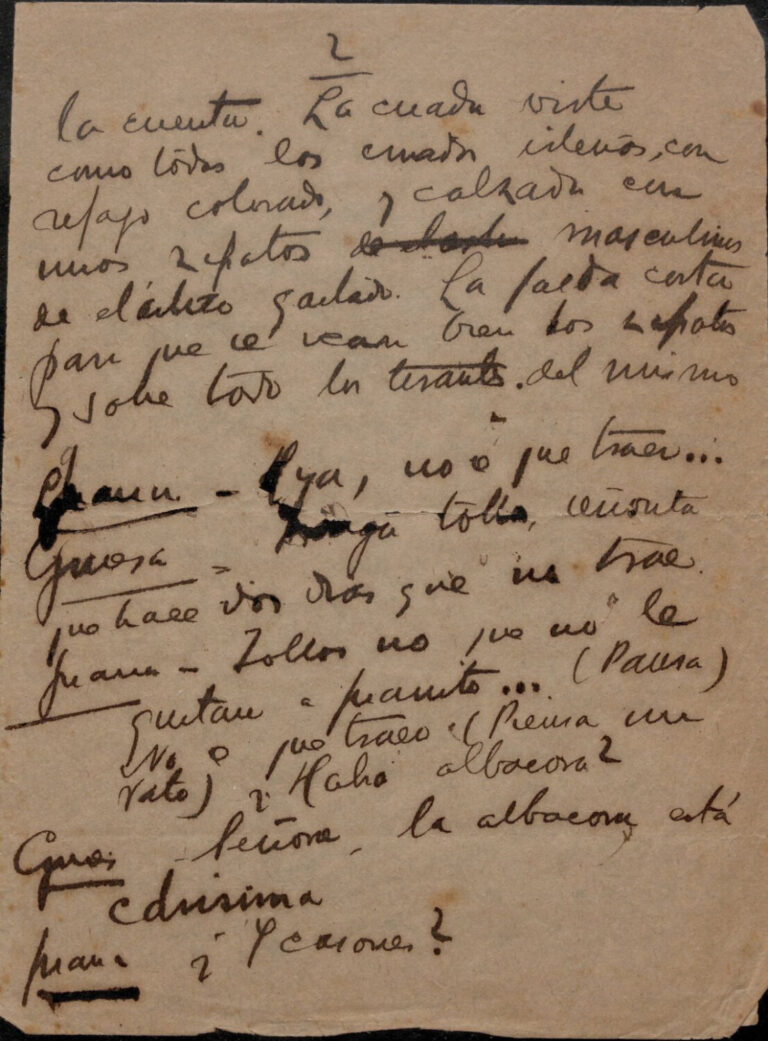 2
la cuenta. La criada viste
como todas las criadas isleñas, con
refajo colorado, y calzada con
unos zapatos masculinos
de elástico gastado. La falda corta
para que se vean bien los zapatos
y sobre todo los tirantes del mismo
Juana - Oya, no sé que traer...
Gnesa - Traiga tollos, señorita
que hace dos dias que no trae.
Juana - Tollos no que no le
gustan a Juanito... (Pausa)
No sé que traer. (Piensa un
rato) ¿Habrá albacora?
Gnesa - Señora, la albacora está
carisima
Juana ¿Y casones?